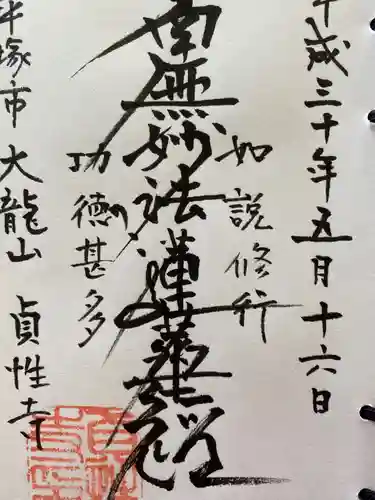 平成三十年五月十六日
如説修行
南無妙法蓮華経
功徳甚多
平塚市大龍山貞性寺